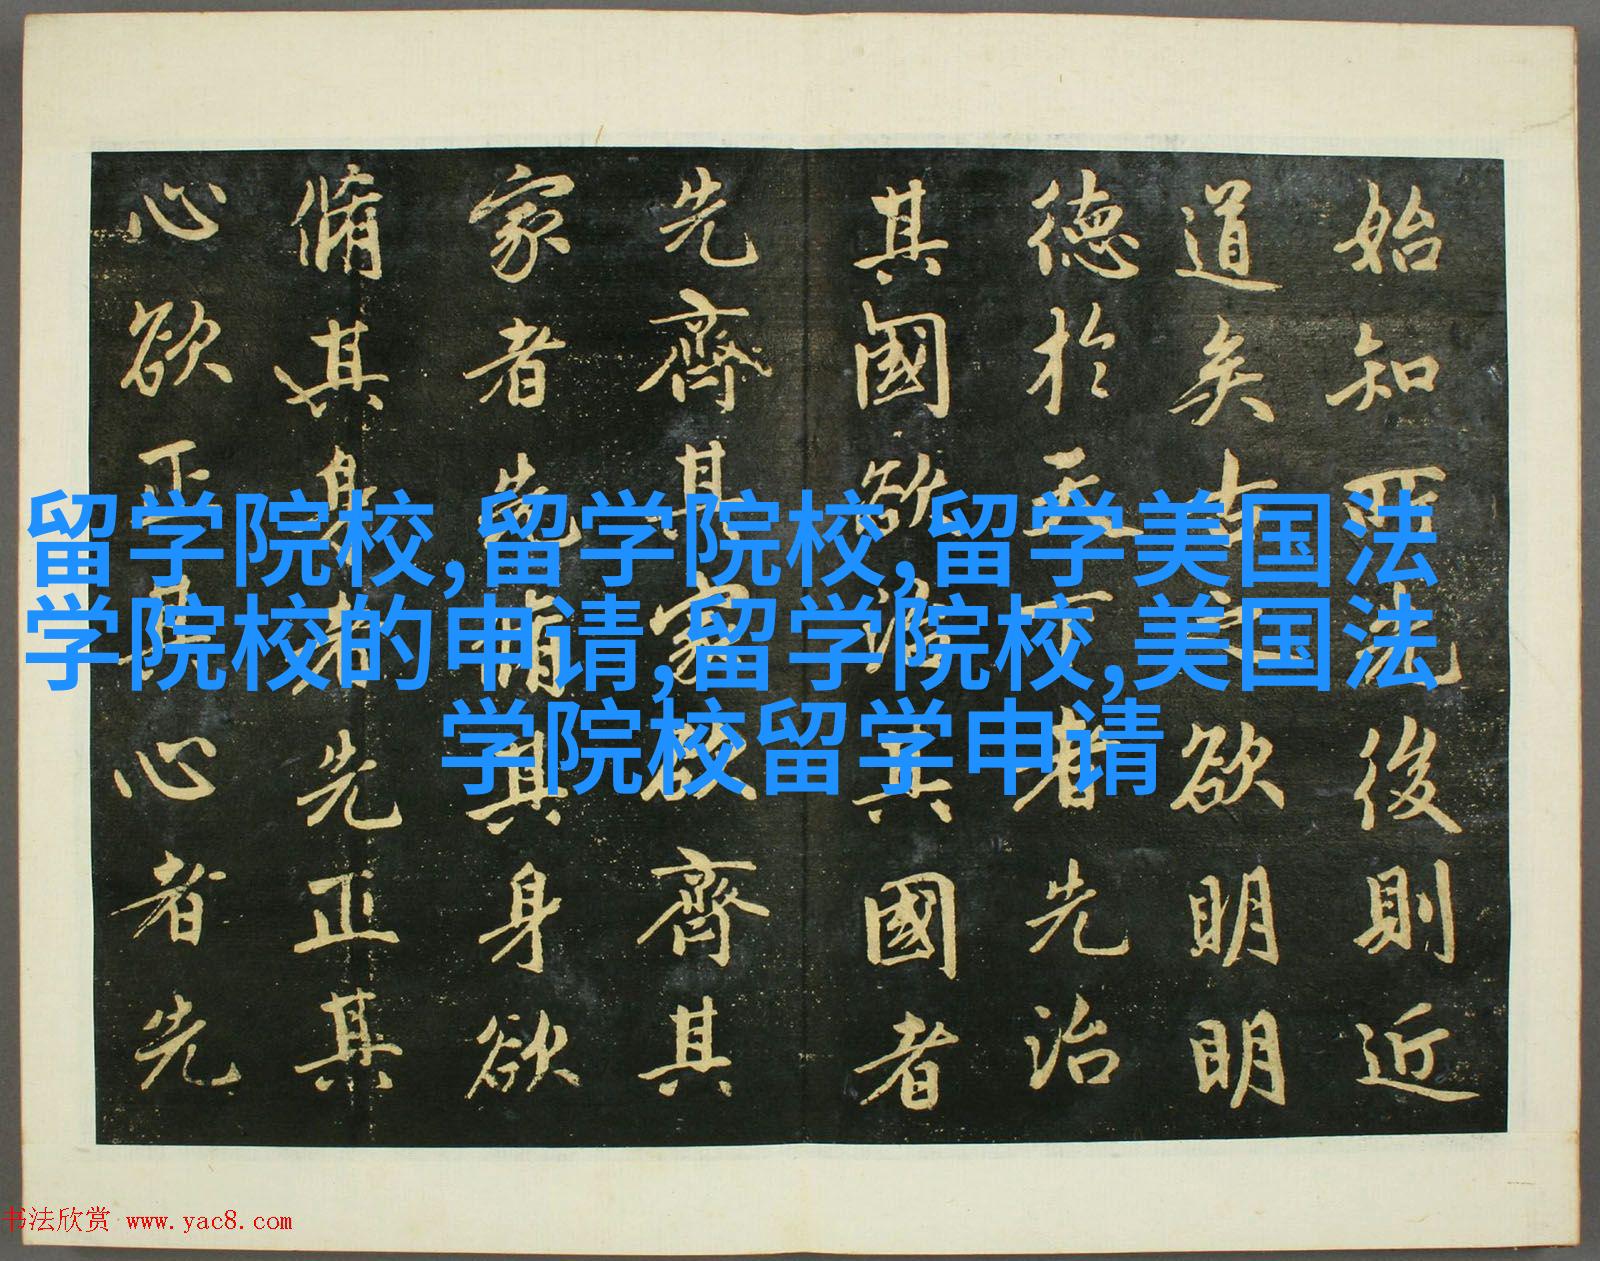 始知所先後則近
道矣古之欲明明
德於天下者先治
其國欲治其國者
先齊其家欲齊其
家者先脩其身欲
脩其身者先正其
心欲正其心者先
留学院校,留学院校,留学美国法
学院校的申请,留学院校,美国法
学院校留学申请
书法欣赏 www.yac8.com